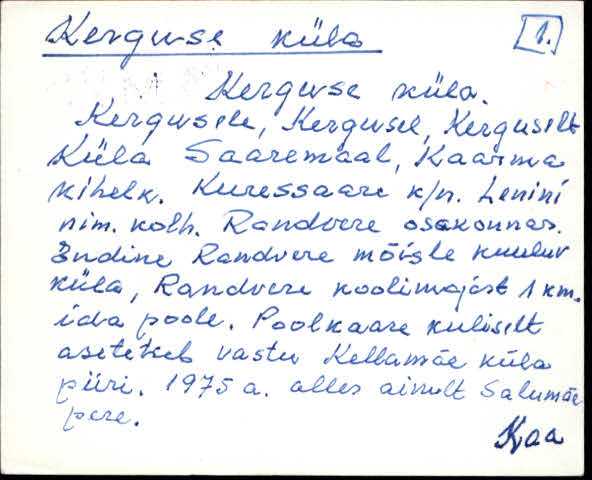 Kerguse küla
1.
Kerguse küla.
Kergusele, Kergusel, Kerguselt
Küla Saaremaal, Kaarma
kihelk. Kuressaare k/n. Lenini
nim. kolh. Randvere osakonnas.
Endine Randvere mõisle kuuluv
küla, Randvere koolimajast 1 km.
ida poole. Poolkaare kuliselt
asetseb vastu Kellamäe küla
piiri. 1975 a. alles ainult Salumäe
pere.
Kaa